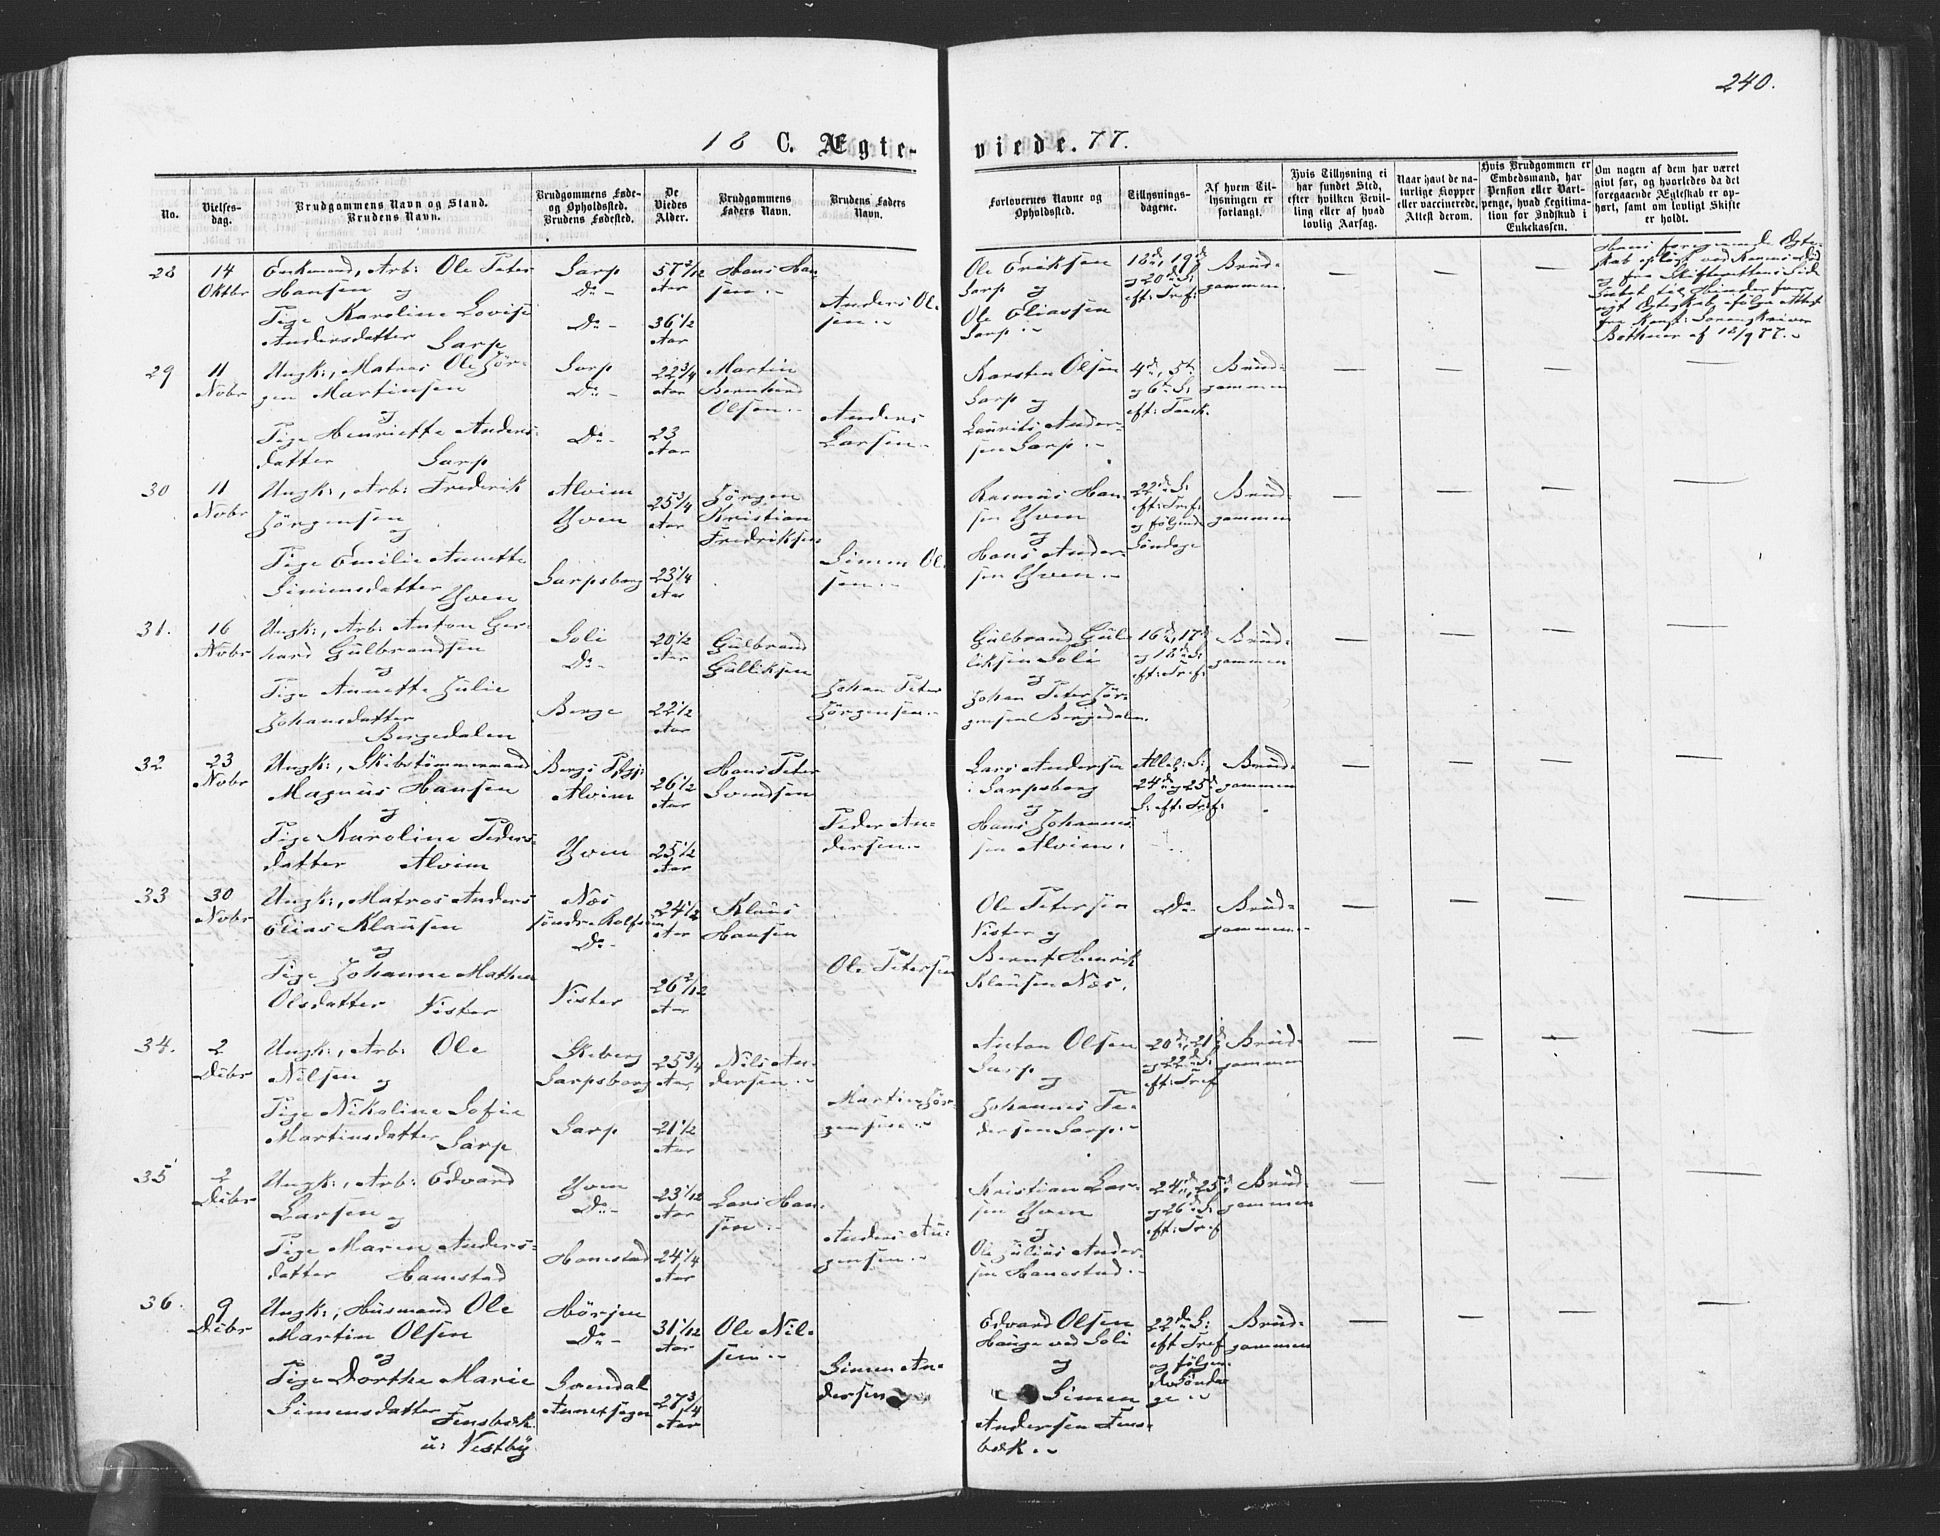 240.
18 C. Ægte-viede. 77.
No.
Vielses-
dag.
Brudgommens Navn og Stand.
Brudens Navn.
Brudgommens Føde-
og Opholdssted.
Brudens Fødested.
De
Viedes
Alder.
Brudgommens
Faders Navn.
Brudens Faders
Navn.
Forlovernes Navne og
Opholdssted.
Tillysnings-
dagene.
Af hvem Til-
lysningen er
forlangt.
Hvis Tillysning ei
har fundet Sted,
efter hvilken Bevil-
ling eller af hvad
lovlig Aarsag.
Naar havt de na-
turlige Kopper
eller vaccinerede.
Attest derom.
Hvis Brudgommen er
Embedsmand, har
Pension eller Vart-
penge, hvad Legitima-
tion for Indskud i
Enkekassen.
Om nogen af dem har været
givt før, og hvorledes da det
foregaaende Ægteskab er op-
hørt, samt om lovligt Skifte
er holdt.
28
14
Oktbr
Enkemand, Arb: Ole Peter
Hansen og
Pige Karoline Lovise
Andersdatter Sarp
Sarp
Do -
Do -
57 2/12
36 1/2
Aar
Hans Han-
sen.
Anders Ol-
sen.
Ole Eriksen
Sarp og
Ole Eliassen
Sarp.
18de, 19de
og 20de S:
eft: Tref:
Brud-
gommen
Hans foregaaende Ægte-
skab opløst ved Konens Død
og fra Skifterettens Side
Intet til Hinder for
nyt Ægteskab, ifølge Attest
fra Konst: Sorenskriver
Bothner af 12/9 77.
29
11
Nobr
Ungk:, Matros Ole Jør-
gen Martinsen
og
Pige Henriette Anders-
datter Sarp
Sarp
Do -
Do -
22 3/4
Aar
23
Aar
Martin
Bernhard
Olsen.
Anders
Larsen.
Karsten Olsen
Sarp og
Laurits Ander-
sen Sarp.
4de, 5te
og 6te S:
eft: Tref.
Brud-
gommen
30
11
Nobr
Ungk:, Arb: Frederik
Jørgensen
og
Pige Emilie Annette
Simensdatter Yven
Alvim
Yven
Sarpsborg
25 3/4
Aar
23 1/4
Aar
Jørgen
Kristian
Fredriksen
Simen Ol-
sen.
Rasmus Han-
sen Yven
og
Hans Ander-
sen Yven.
22de S:
eft: Tref:
og følgende
Søndage
Brud-
gommen
31.
16
Nobr
Ungk:, Arb: Anton Ger-
hard Gulbrandsen
og
Pige Annette Julie
Johansdatter
Bergedalen
Soli
Do -
Berge
20 1/2
Aar
22 1/2
Aar
Gulbrand
Gulliksen
Johan Peter
Jørgensen.
Gulbrand Gul-
liksen Soli
og
Johan Peter Jør-
gensen Bergedalen.
16de, 17de
og 18de S:
eft: Tref:
Brud-
gommen
32
23
Nobr
Ungk:, Skibstømmermand
Magnus Hansen
og
Pige Karoline Peders-
datter Alvim
Alvim
Yven
26 1/2
Aar
25 1/2
Aar
Hans Peter
Svendsen
Peder An-
dersen.
Lars Andersen
i Sarpsborg
og
Hans Johannes-
sen Alvim.
24de og 25de
S: eft: Tref:
Brud-
gommen
33
30
Nobr
Ungk:, Matros Anders
Elias Klausen
og
Pige Johanne Mathea
Olsdatter Vister
Næs
søndre Rolfsøen
Do -
Vister
24 1/2
Aar
26 2/12
Aar
Klaus
Hansen
Ole Petersen
Ole Petersen
Vister og
Bernt Henrik
Klausen Næs.
Do
Brud-
gommen.
34.
2
Debr
Ungk:, Arb: Ole
Nilsen
og
Pige Nikoline Sofie
Martinsdatter Sarp
Skeberg
Sarpsborg
Sarp
25 3/4
Aar
21 1/2
Aar
Nils An-
dersen.
Martin Jør-
gensen.
Anton Olsen
Sarp
og
Johannes Pe-
dersen Sarp.
20de, 21de
og 22de S:
eft: Tref
Brud-
gommen
35
2
Debr
Ungk:, Arb: Edvard
Larsen
og
Pige Maren Anders-
datter Hanestad
Yven
Do -
Hanestad
23 1/12
Aar
24 1/4
Aar
Lars Han-
sen.
Kristian Lar-
sen Yven
og
Ole Julius Ander-
sen Hanestad.
24de, 25de
og 26de S:
eft: Tref
Brud-
gommen
36.
9
Debr
Ungk:, Husmand Ole
Martin Olsen
og
Pige Dorthe Marie
Simensdatter Fensbæk
u: Vestby
Do -
31 1/12
Aar
27 3/4
Aar
Ole Nil-
sen.
Simen An-
dersen
Edvard Olsen
Hauge ved Soli
og
Simen
Andersen Fens-
bæk.
22de S:
eft Tref
og følgen-
de Sønda-
ge.
Brud-
gommen